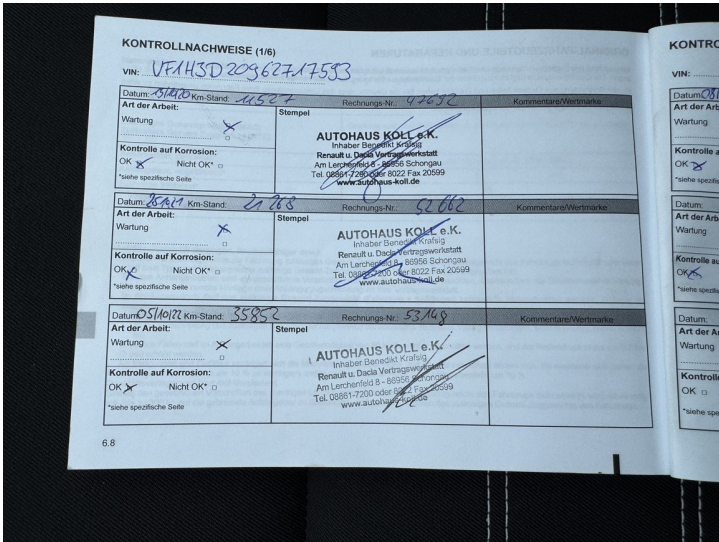 KONTROLLNACHWEISE (1/6)
VIN: VF1H3D20962717593
Datum: 13/10/20 Km-Stand: 11527 Rechnungs-Nr.: 47692 Kommentare/Wertmarke
Art der Arbeit:
Stempel
Wartung
Kontrolle auf Korrosion:
OK Nicht OK*
*siehe spezifische Seite
AUTOHAUS KOLL e.K.
Inhaber Benedikt Krafsig
Renault u. Dacia Vertragswerkstatt
Am Lerchenfeld 8 - 86956 Schongau
Tel. 08861-7200 oder 8022 Fax 20599
www.autohaus-koll.de
Datum: Km-Stand: 21268 Rechnungs-Nr.: 52662 Kommentare/Wertmarke
Art der Arbeit:
Stempel
Wartung
Kontrolle auf Korrosion:
OK Nicht OK*
*siehe spezifische Seite
AUTOHAUS KOLL e.K.
Inhaber Benedikt Krafsig
Renault u. Dacia Vertragswerkstatt
Am Lerchenfeld 8 - 86956 Schongau
Tel. 08861-7200 oder 8022 Fax 20599
www.autohaus-koll.de
Datum: 05/10/22 Km-Stand: 35852 Rechnungs-Nr.: 53148 Kommentare/Wertmarke
Art der Arbeit:
Stempel
Wartung
Kontrolle auf Korrosion:
OK Nicht OK*
*siehe spezifische Seite
AUTOHAUS KOLL e.K.
Inhaber Benedikt Krafsig
Renault u. Dacia Vertragswerkstatt
Am Lerchenfeld 8 - 86956 Schongau
Tel. 08861-7200 oder 8022 Fax 20599
www.autohaus-koll.de
6.8
KONTR
VIN:
Datum: 08/
Art der Arb
Wartung
Kontrolle a
OK
*siehe spezifis
Datum:
Art der Arb
Wartung
Kontrolle
OK
*siehe spezifis
Datum:
Art der A
Wartung
Kontroll
OK
*siehe spe